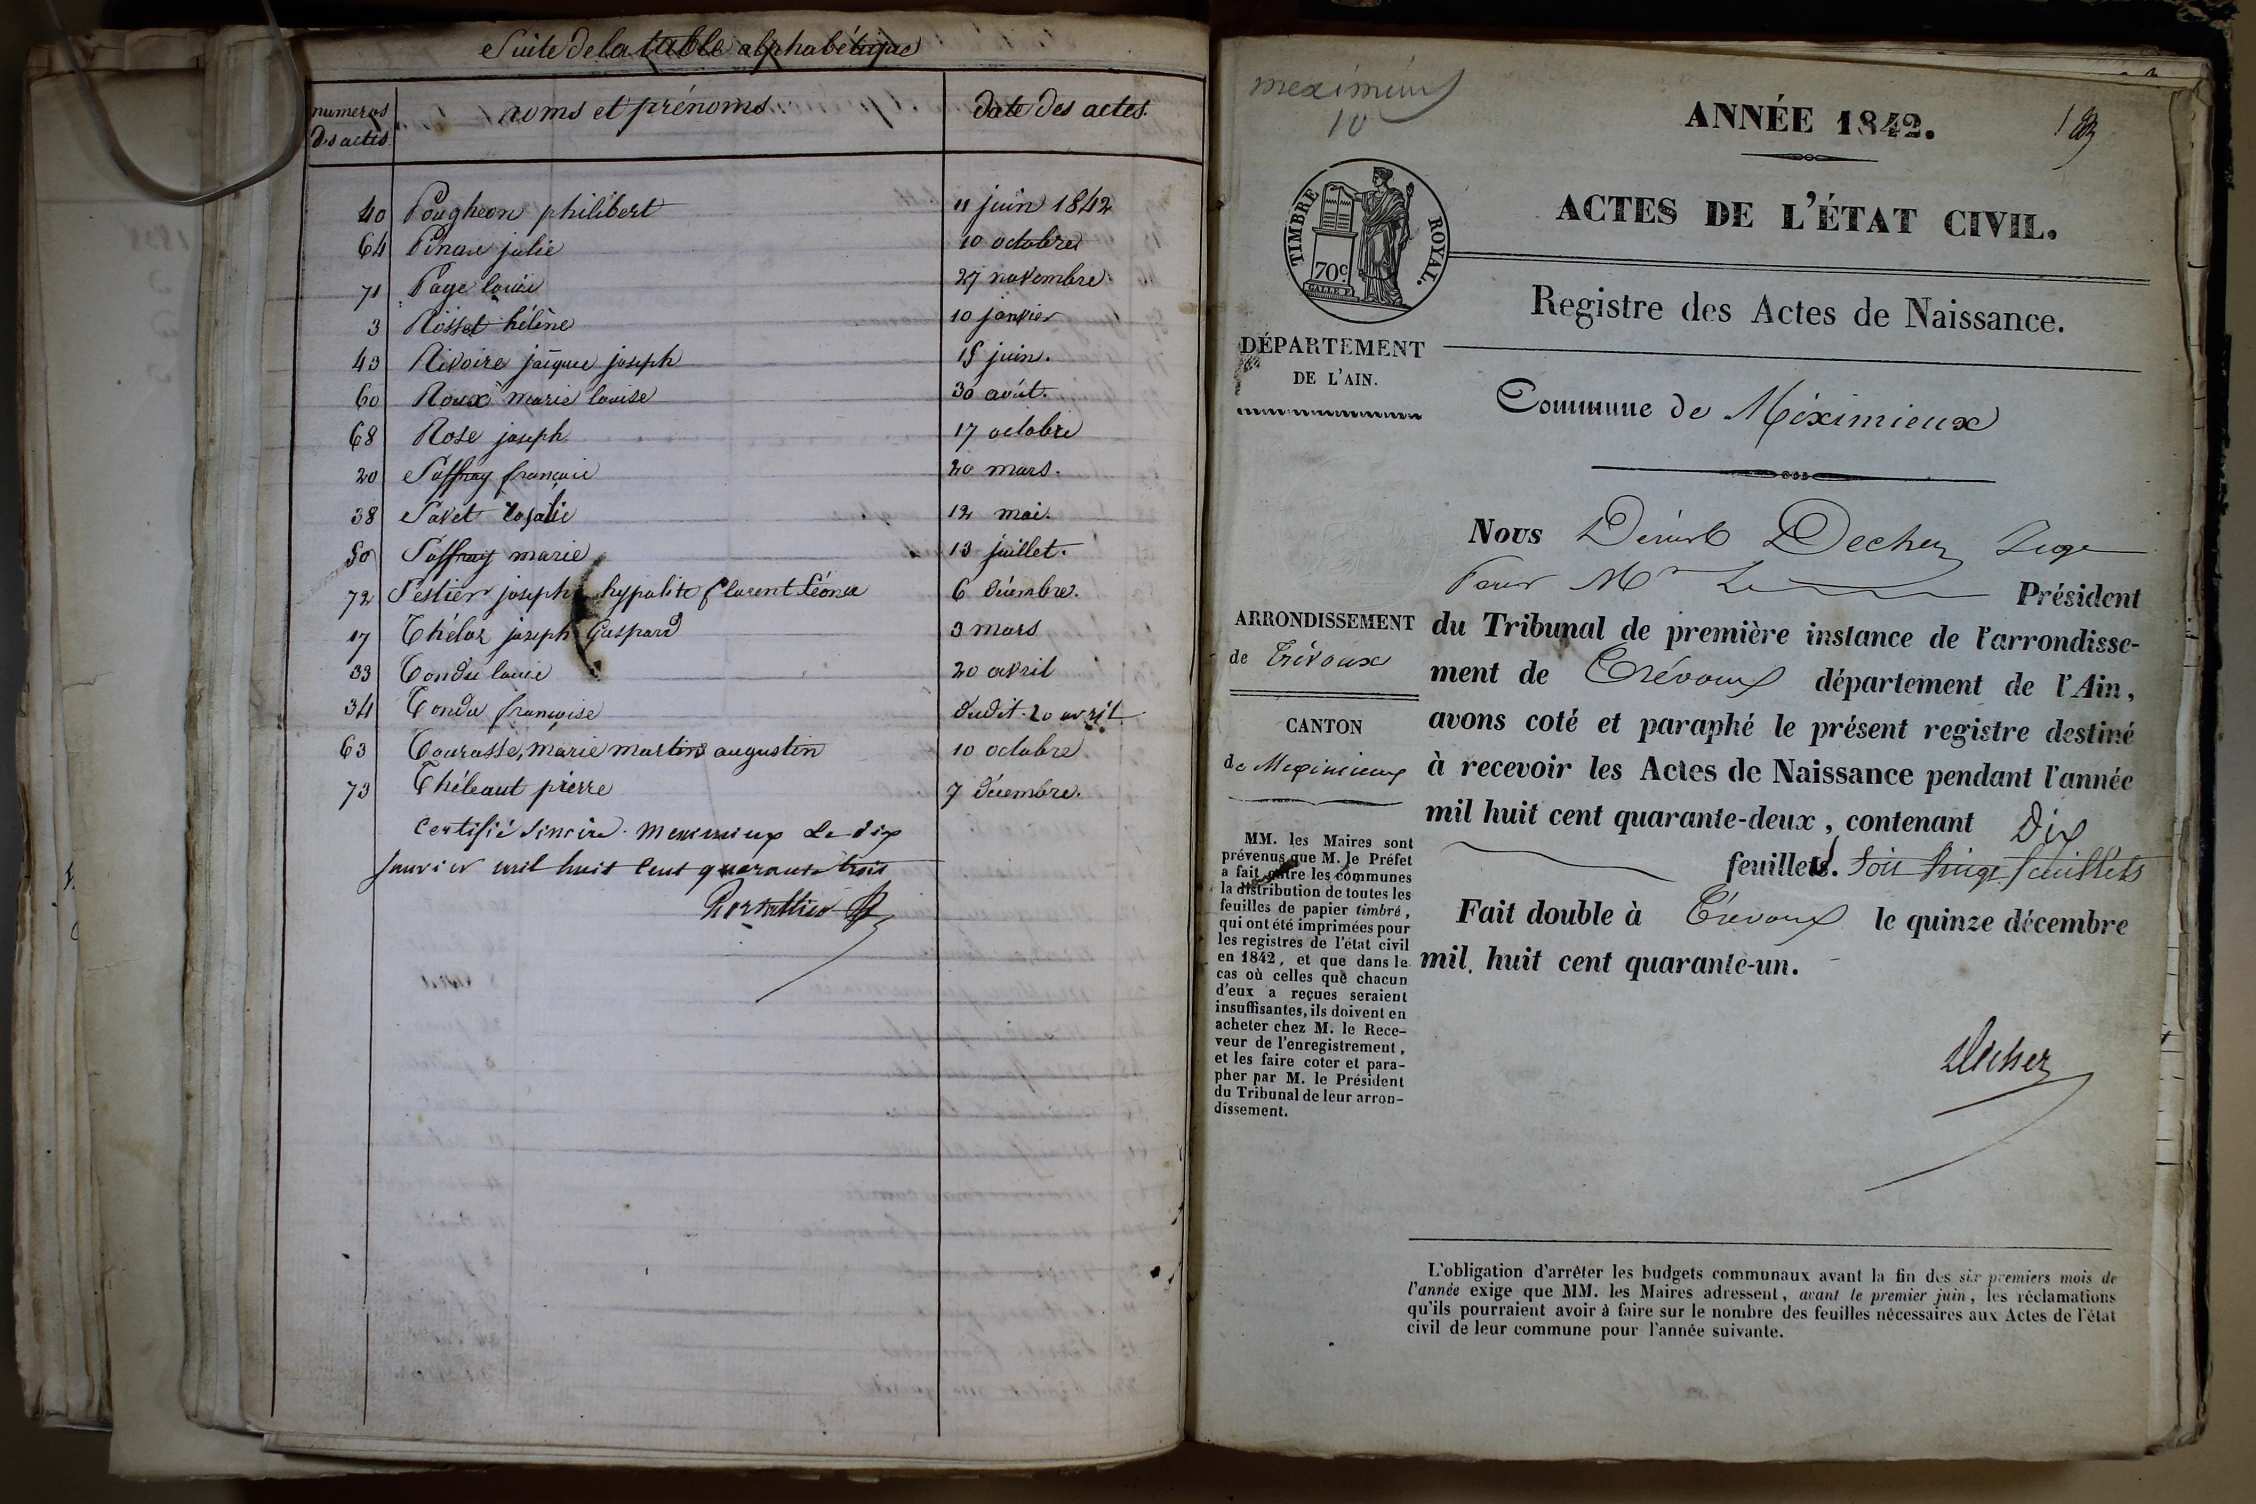 Suite de la table alphabétique
numeros des actes | noms et prénoms | date des actes.
40 Pougheon philibert 11 juin 1842
64 julie 10 octobre
71 Page louise 27 novembre
3 Rosset hélène 10 janvier
43 Rivoire jacques joseph 15 juin.
60 Roux marie louise 30 août.
68 Rose joseph 17 octobre
20 Saffray 20 mars.
38 Savet rosalie 12 mai.
50 Saffray marie 13 juillet.
72 Sestier joseph hypolite florent Léonce 6 décembre.
17 Thélaz joseph Gaspard 3 mars
33 Tondu louise 20 avril
34 Tondu françoise dudit 20 avril
63 Tourasse, marie martin augustin 10 octobre
73 Théleaut pierre 7 décembre.
Certifié sincère. Meximieux le dix
janvier mil huit cent quarante trois
meximieux
10
ANNÉE 1842.
ACTES DE L'ÉTAT CIVIL.
TIMBRE ROYAL.
70c
Registre des Actes de Naissance.
DÉPARTEMENT
DE L'AIN.
Commune de Méximieux
Nous Désiré Decher Juge
Pour Mr Le Président
ARRONDISSEMENT
de Trévoux
CANTON
de Meximieux
du Tribunal de première instance de l'arrondisse-
ment de Trévoux département de l'Ain,
avons coté et paraphé le présent registre destiné
à recevoir les Actes de Naissance pendant l'année
mil huit cent quarante-deux, contenant Dix
feuillets. soit vingt feuillets
Fait double à Trévoux le quinze décembre
mil huit cent quarante-un.
Decher
MM. les Maires sont
prévenus que M. le Préfet
a fait entre les communes
la distribution de toutes les
feuilles de papier timbré,
qui ont été imprimées pour
les registres de l'état civil
en 1842, et que dans le
cas où celles que chacun
d'eux a reçues seraient
insuffisantes, ils doivent en
acheter chez M. le Rece-
veur de l'enregistrement,
et les faire coter et para-
pher par M. le Président
du Tribunal de leur arron-
dissement.
L'obligation d'arrêter les budgets communaux avant la fin des six premiers mois de
l'année exige que MM. les Maires adressent, avant le premier juin, les réclamations
qu'ils pourraient avoir à faire sur le nombre des feuilles nécessaires aux Actes de l'état
civil de leur commune pour l'année suivante.